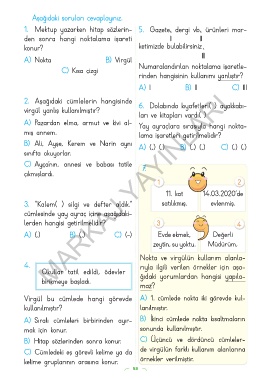 Aşağıdaki soruları cevaplayınız.
1. Mektup yazarken hitap sözlerin-
den sonra hangi noktalama işareti
konur?
A) Nokta B) Virgül
C) Kısa çizgi
2. Aşağıdaki cümlelerin hangisinde
virgül yanlış kullanılmıştır?
A) Pazardan elma, armut ve kivi al-
mış annem.
B) Ali, Ayşe, Kerem ve Narin aynı
sınıfta okuyorlar.
C) Ayça'nın, annesi ve babası tatile
çıkmışlardı.
3. "Kalem( ) silgi ve defter aldık."
cümlesinde yay ayraç içine aşağıdaki-
lerden hangisi getirilmelidir?
A) (.) B) (,) C) (-)
4.
Okullar tatil edildi, ödevler
birikmeye başladı.
Virgül bu cümlede hangi görevde
kullanılmıştır?
A) Sıralı cümleleri birbirinden ayır-
mak için konur.
B) Hitap sözlerinden sonra konur.
C) Cümledeki eş görevli kelime ya da
kelime gruplarının arasına konur.
5. Gazete, dergi vb, ürünleri mar-
I II
ketimizde bulabilirsiniz.
III
Numaralandırılan noktalama işaretle-
rinden hangisinin kullanımı yanlıştır?
A) I B) II C) III
6. Dolabında kıyafetleri( ) ayakkabı-
ları ve kitapları vardı( )
Yay ayraçlara sırasıyla hangi nokta-
lama işaretleri getirilmelidir?
7.
1
11. kat
satılıkmış.
2
14.03.2020'de
evlenmiş.
3
Evde ekmek,
zeytin, su yoktu.
4
Değerli
Müdürüm,
Nokta ve virgülün kullanım alanla-
rıyla ilgili verilen örnekler için aşa-
ğıdaki yorumlardan hangisi yapıla-
maz?
A) 1. cümlede nokta iki görevde kul-
lanılmıştır.
B) İkinci cümlede nokta kısaltmaların
sonunda kullanılmıştır.
C) Üçüncü ve dördüncü cümleler-
de virgülün farklı kullanım alanlarına
örnekler verilmiştir.